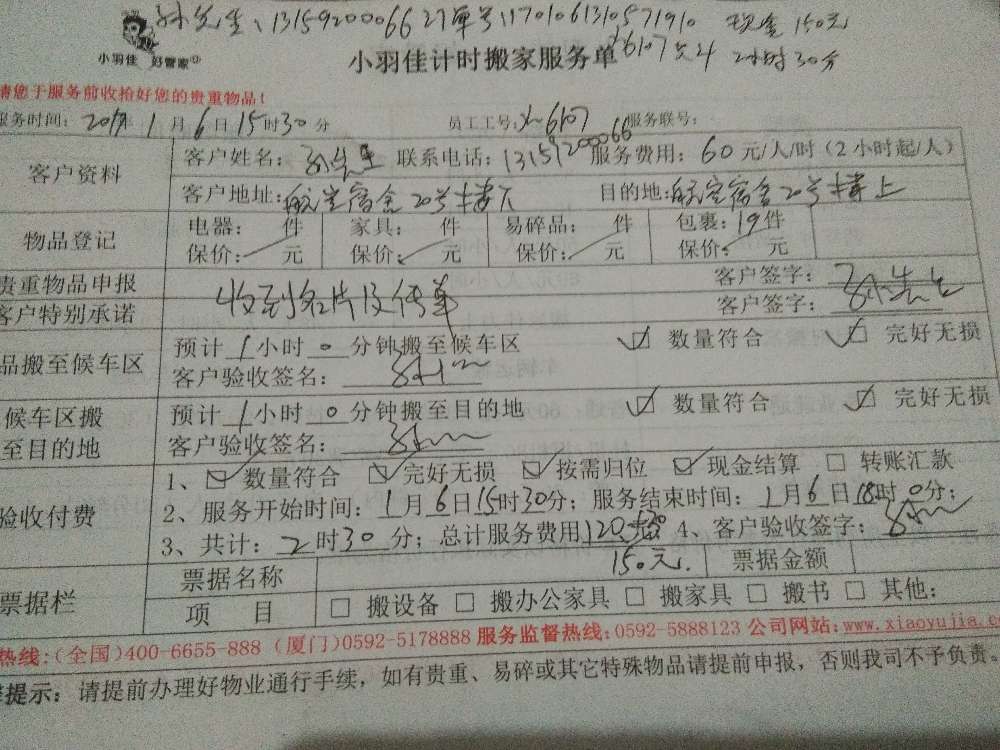 孙先生、13159200066 27单号:1701061310571910 现金150元
小羽佳 好管家
小羽佳计时搬家服务单
X6107 2小时30分
请您于服务前收拾好您的贵重物品!
服务时间: 2017年1月6日15时30分 员工工号:X6107 服务联号:
客户资料 客户姓名:孙先生 联系电话:13159200066 服务费用:60元/人/时(2小时起/人)
客户地址:航空宿舍20号楼下 目的地:航空宿舍20号楼上
物品登记 电器: 件 家具: 件 易碎品: 件 包裹:19件
保价: 元 保价: 元 保价: 元 保价: 元
贵重物品申报 客户签字:孙先生
客户特别承诺 收到名片及传单 客户签字:
品搬至候车区 预计1小时0分钟搬至候车区 ☑ 数量符合 ☑ 完好无损
客户验收签名:
候车区搬至目的地 预计1小时0分钟搬至目的地 ☑ 数量符合 ☑ 完好无损
客户验收签名:
验收付费 1、☑ 数量符合 ☑ 完好无损 ☑ 按需归位 ☑ 现金结算 □ 转账汇款
2、服务开始时间:1月6日15时30分;服务结束时间:1月6日18时0分;
3、共计:2时30分;总计服务费用120 4、客户验收签字:
150元.
票据栏 票据名称 票据金额
项 目 □ 搬设备 □ 搬办公家具 □ 搬家具 □ 搬书 □ 其他:
热线:(全国)400-6655-888 (厦门)0592-5178888 服务监督热线:0592-5888123 公司网站:www.xiaoyujia.co
提示:请提前办理好物业通行手续,如有贵重、易碎或其它特殊物品请提前申报,否则我司不予负责。